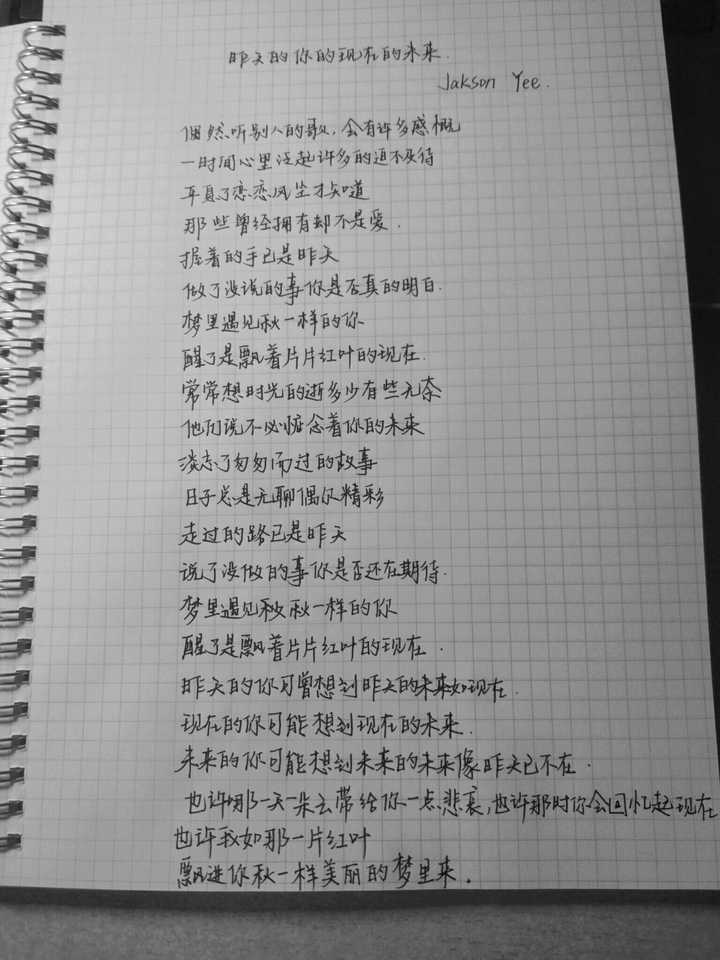 昨天的你的现在的未来.
Jakson Yee.
偶然听别人的歌,会有许多感概
一时间心里泛起许多的迫不及待
平复了恋恋风尘才知道
那些曾经拥有却不是爱.
握着的手已是昨天
做了没说的事你是否真的明白.
梦里遇见秋一样的你
醒了是飘着片片红叶的现在.
常常想时光的逝多少有些无奈
他们说不必惦念着你的未来
淡忘了匆匆而过的故事
日子总是无聊偶尔精彩
走过的路已是昨天
说了没做的事你是否还在期待.
梦里遇见秋一样的你
醒了是飘着片片红叶的现在.
昨天的你可曾想到昨天的未来如现在.
现在的你可能想到现在的未来.
未来的你可能想到未来的未来像昨天已不在.
也许哪一天一朵云带给你一点悲哀,也许那时你会回忆起现在
也许我如那一片红叶
飘进你秋一样美丽的梦里来.